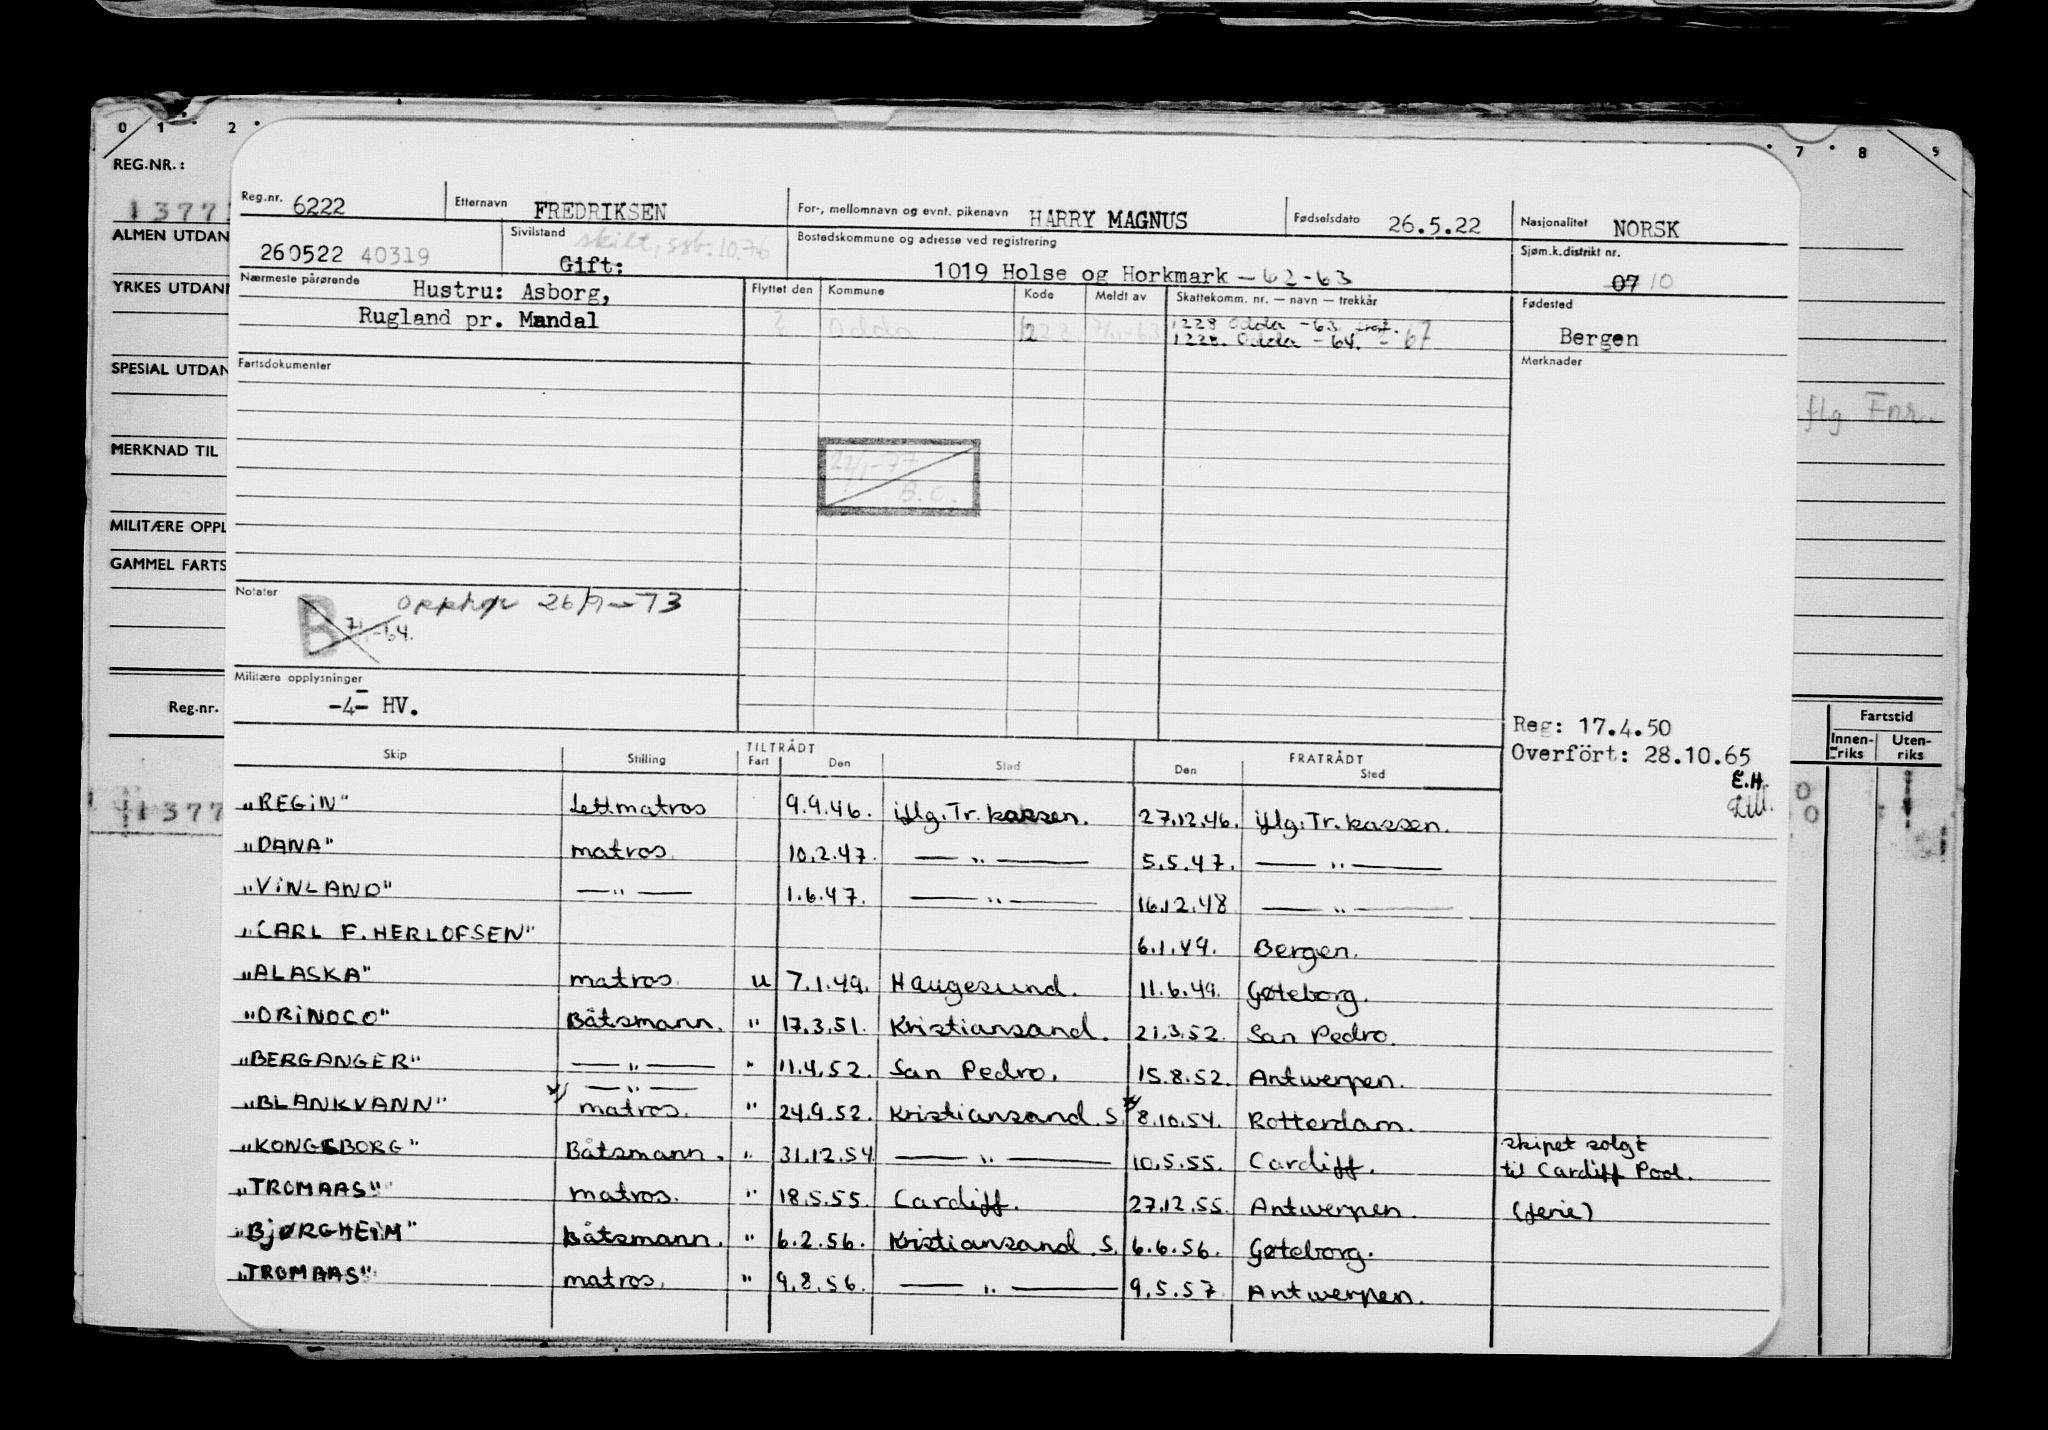 0 1 2
7 8 9
REG.NR.:
1377
ALMEN UTDAN
YRKES UTDANN
SPESIAL UTDAN
flg Fnr.
MERKNAD TIL
MILITÆRE OPPL
GAMMEL FARTS
Reg.nr.
Fartstid
Innen-riks Uten-riks
1377
Reg.nr. 6222
Etternavn FREDRIKSEN
For-, mellomnavn og evnt. pikenavn HARRY MAGNUS
Fødselsdato 26.5.22
Nasjonalitet NORSK
260522 40319
Sivilstand skilt, ssb. 10.76
Gift:
Bostedskommune og adresse ved registrering
1019 Holse og Horkmark - 62-63
Sjøm.k.distrikt nr.
07 10
Nærmeste pårørende Hustru: Asborg,
Rugland pr. Mandal
Flyttet den Kommune Kode Meldt av Skattekomm. nr. — navn — trekkår
Odda 1228 7/1-63 1228 Odda -63.
1228. Odda - 64. - 67
Fødested
Bergen
Fartsdokumenter
Merknader
22/1-77
B.C.
Notater
Opphør 26/9-73
B 7/1-64.
Militære opplysninger
-4- HV.
Reg: 17.4.50
Overfört: 28.10.65
E.H.
Skip Stilling TILTRÅDT Fart Den Sted FRATRÅDT Den Sted
"REGIN" Lettmatros 9.9.46. iflg. Tr. kassen. 27.12.46. iflg. Tr. kassen.
"DANA" matros. 10.2.47. — " — 5.5.47. — " —
"VINLAND" — " — 1.6.47. — " — 16.12.48 — " —
"CARL F. HERLOFSEN" 6.1.49. Bergen.
"ALASKA" matros. u 7.1.49. Haugesund. 11.6.49. Gøteborg.
"ORINOCO" Båtsmann. " 17.3.51. Kristiansand. 21.3.52. San Pedro.
"BERGANGER" — " — " 11.4.52. San Pedro. 15.8.52. Antwerpen.
— " —
"BLANKVANN" matros. " 24.9.52. Kristiansand S. 8.10.54. Rotterdam.
"KONGSBORG" Båtsmann. " 31.12.54 — " — 10.5.55. Cardiff. skipet solgt
til Cardiff Pool.
"TROMAAS" matros. " 18.5.55. Cardiff. 27.12.55. Antwerpen. (ferie)
"BJØRGHEIM" Båtsmann. " 6.2.56. Kristiansand S. 6.6.56. Gøteborg.
"TROMAAS" matros. " 9.8.56. — " — 9.5.57. Antwerpen.